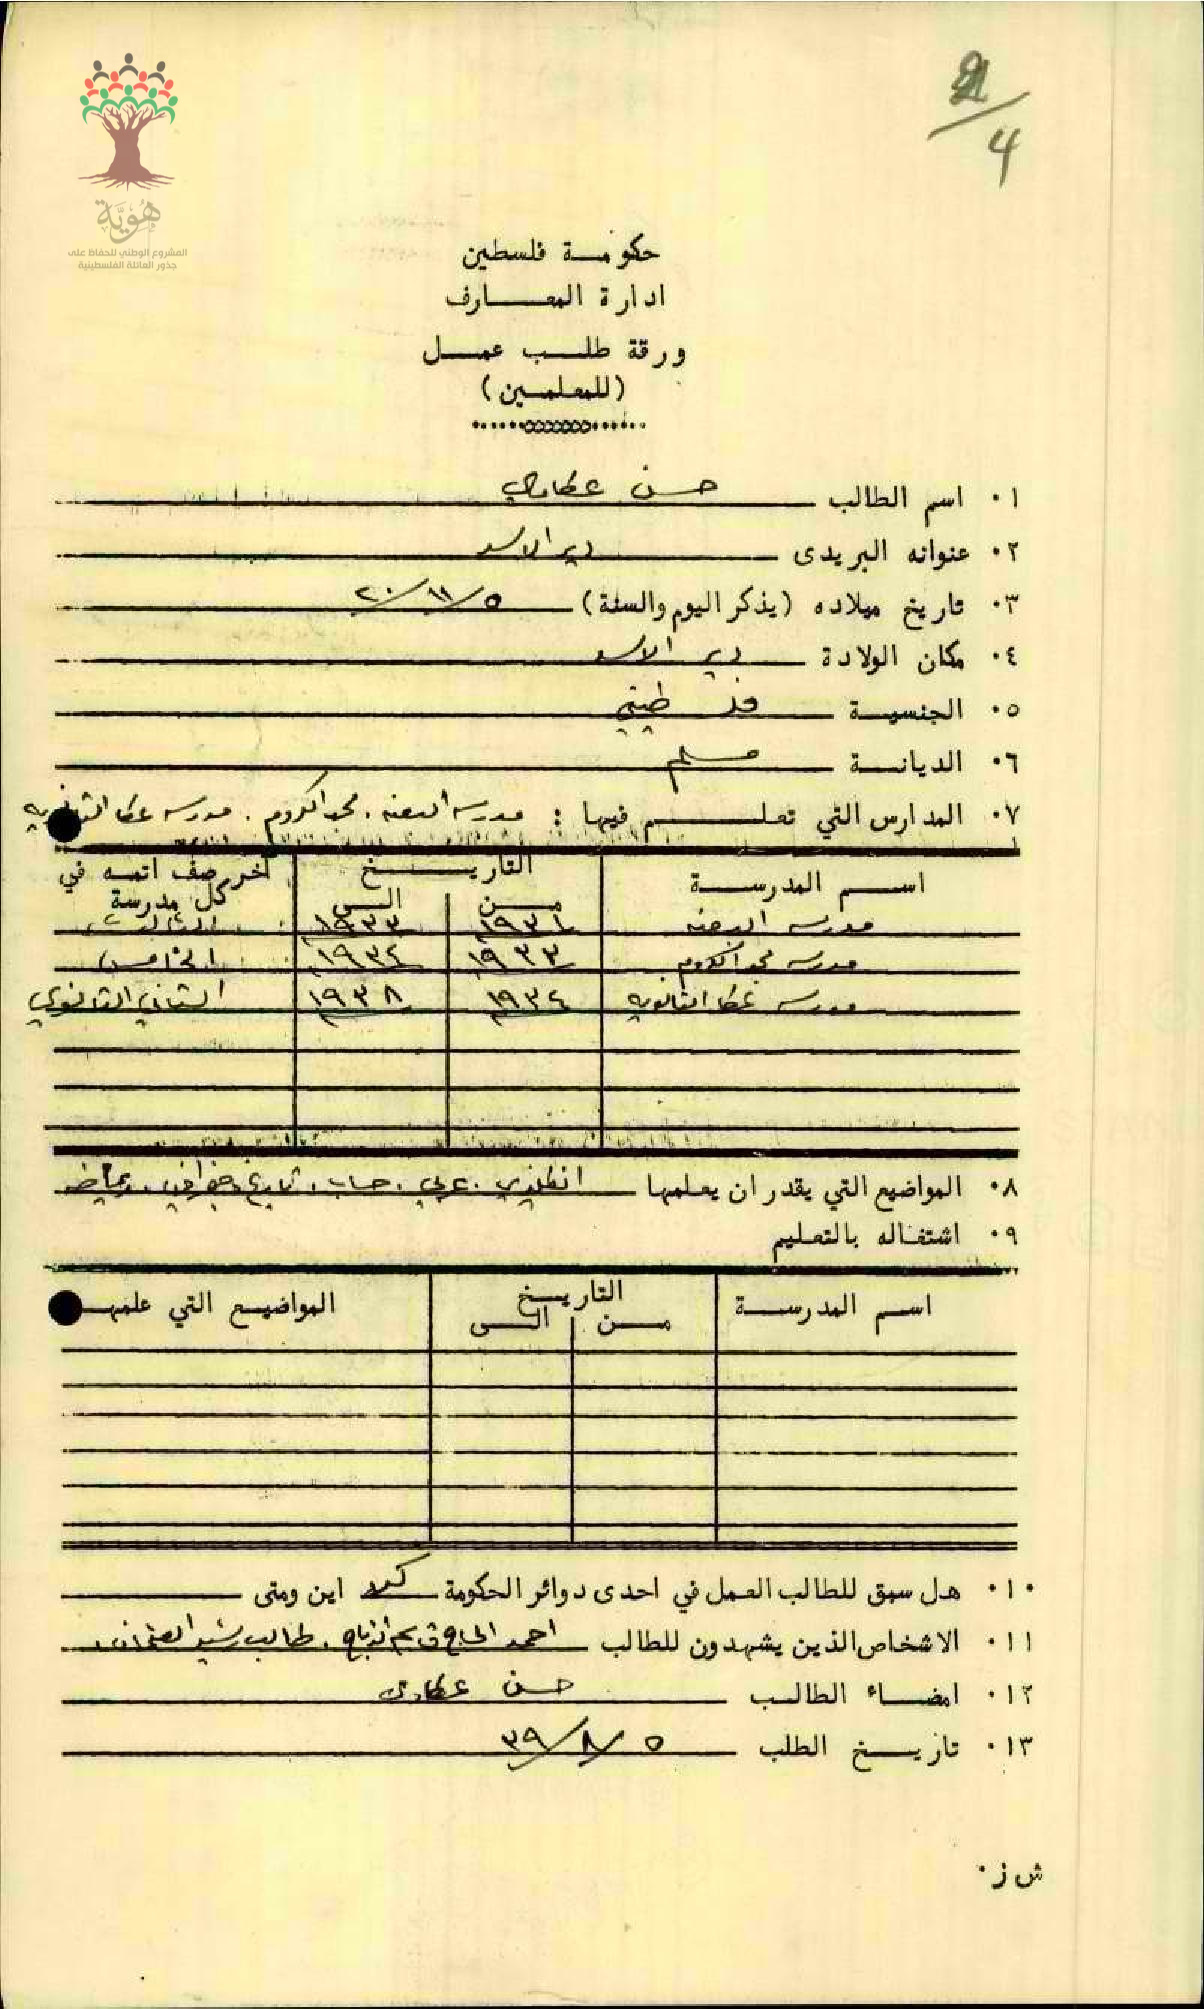 ٤/
هُوِيَّة
المشروع الوطني للحفاظ على
جذور العائلة الفلسطينية
حكومة فلسطين
ادارة المعارف
ورقة طلب عمل
(للمعلمين)
١٠ اسم الطالب حسن عطاوي
٢٠ عنوانه البريدى دير الاسد
٣٠ تاريخ ميلاده (يذكر اليوم والسنة) ٥/١١/٢٠
٤٠ مكان الولادة دير الاسد
٥٠ الجنسية فلسطيني
٦٠ الديانة مسلم
٧٠ المدارس التي تعلم فيها : مدرسه البعنه . مجد الكروم . مدرسه عكا الثانويه
اسم المدرسة التاريخ من الى آخر صف اتمه في كل مدرسة
مدرسه البعنه ١٩٣١ ١٩٣٣ الثالث
مدرسه مجد الكروم ١٩٣٣ ١٩٣٤ الخامس
مدرسه عكا الثانويه ١٩٣٤ ١٩٣٨ الثاني الثانوي
٨٠ المواضيع التي يقدر ان يعلمها انكليزي . عربي . حساب . تاريخ . جغرافي .
٩٠ اشتغاله بالتعليم
اسم المدرسة التاريخ من الى المواضيع التي علمها
١٠٠ هل سبق للطالب العمل في احدى دوائر الحكومة كلا اين ومتى
١١٠ الاشخاص الذين يشهدون للطالب احمد الحاج . طالب رشيد
١٢٠ امضاء الطالب حسن عطاوي
١٣٠ تاريخ الطلب ٥/٨/٣٩
ش ز٠